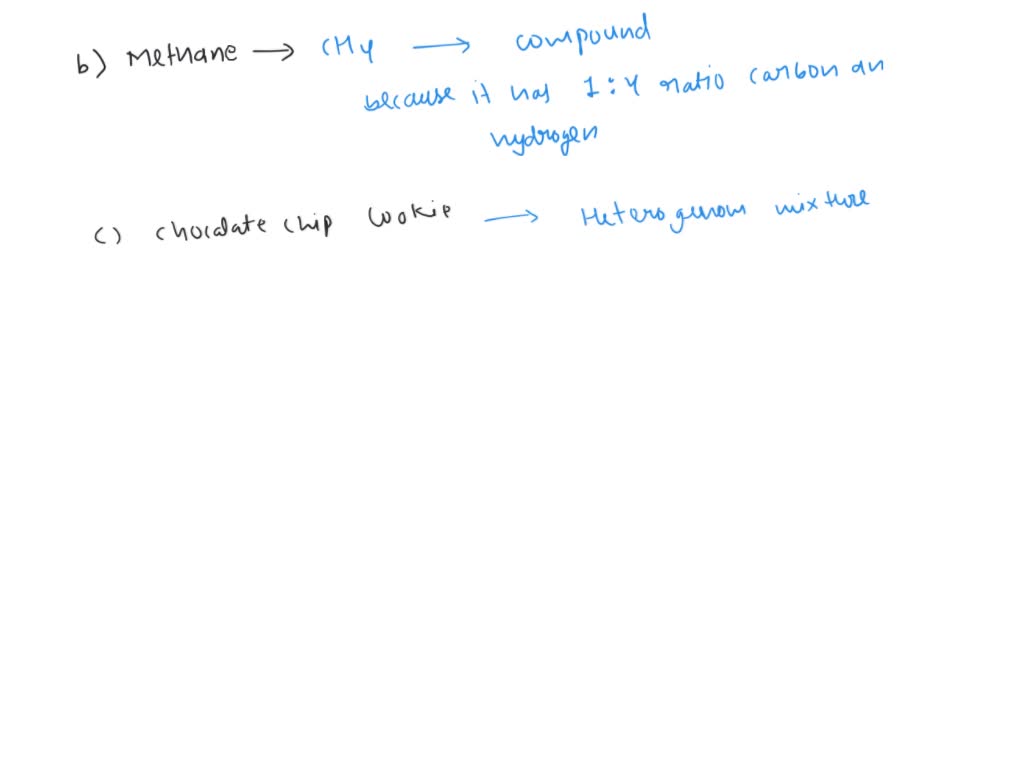 b) Methane → CH4 → compound
because it has 1:4 ratio carbon an
hydrogen
c) chocolate chip cookie → Heterogenous mixture